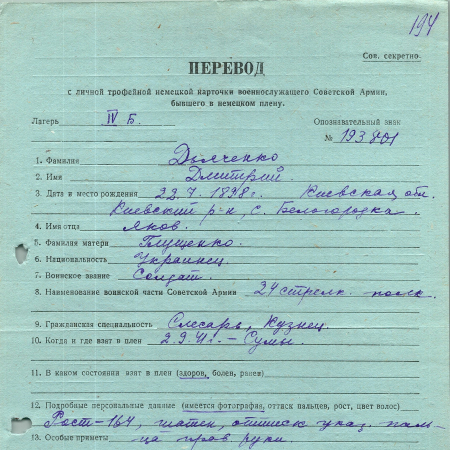 194
Сов. секретно.
ПЕРЕВОД
с личной трофейной немецкой карточки военнослужащего Советской Армии,
бывшего в немецком плену.
Лагерь IV Б. Опознавательный знак
№ 193.801
1. Фамилия Дьяченко
2. Имя Дмитрий.
3. Дата и место рождения 22.7.1898г. Киевская обл.
Киевский р-н, с. Белогородка.
4. Имя отца Яков.
5. Фамилия матери Глущенко.
6. Национальность Украинец.
7. Воинское звание Солдат.
8. Наименование воинской части Советской Армии 24 стрелк. полк.
9. Гражданская специальность Слесарь, Кузнец
10. Когда и где взят в плен 2.9.41г. – Сумы.
11. В каком состоянии взят в плен (здоров, болен, ранен)
12. Подробные персональные данные (имеется фотография, оттиск пальцев, рост, цвет волос)
Рост-164, шатен, оттиск указ. паль-
13. Особые приметы ца прав. руки.